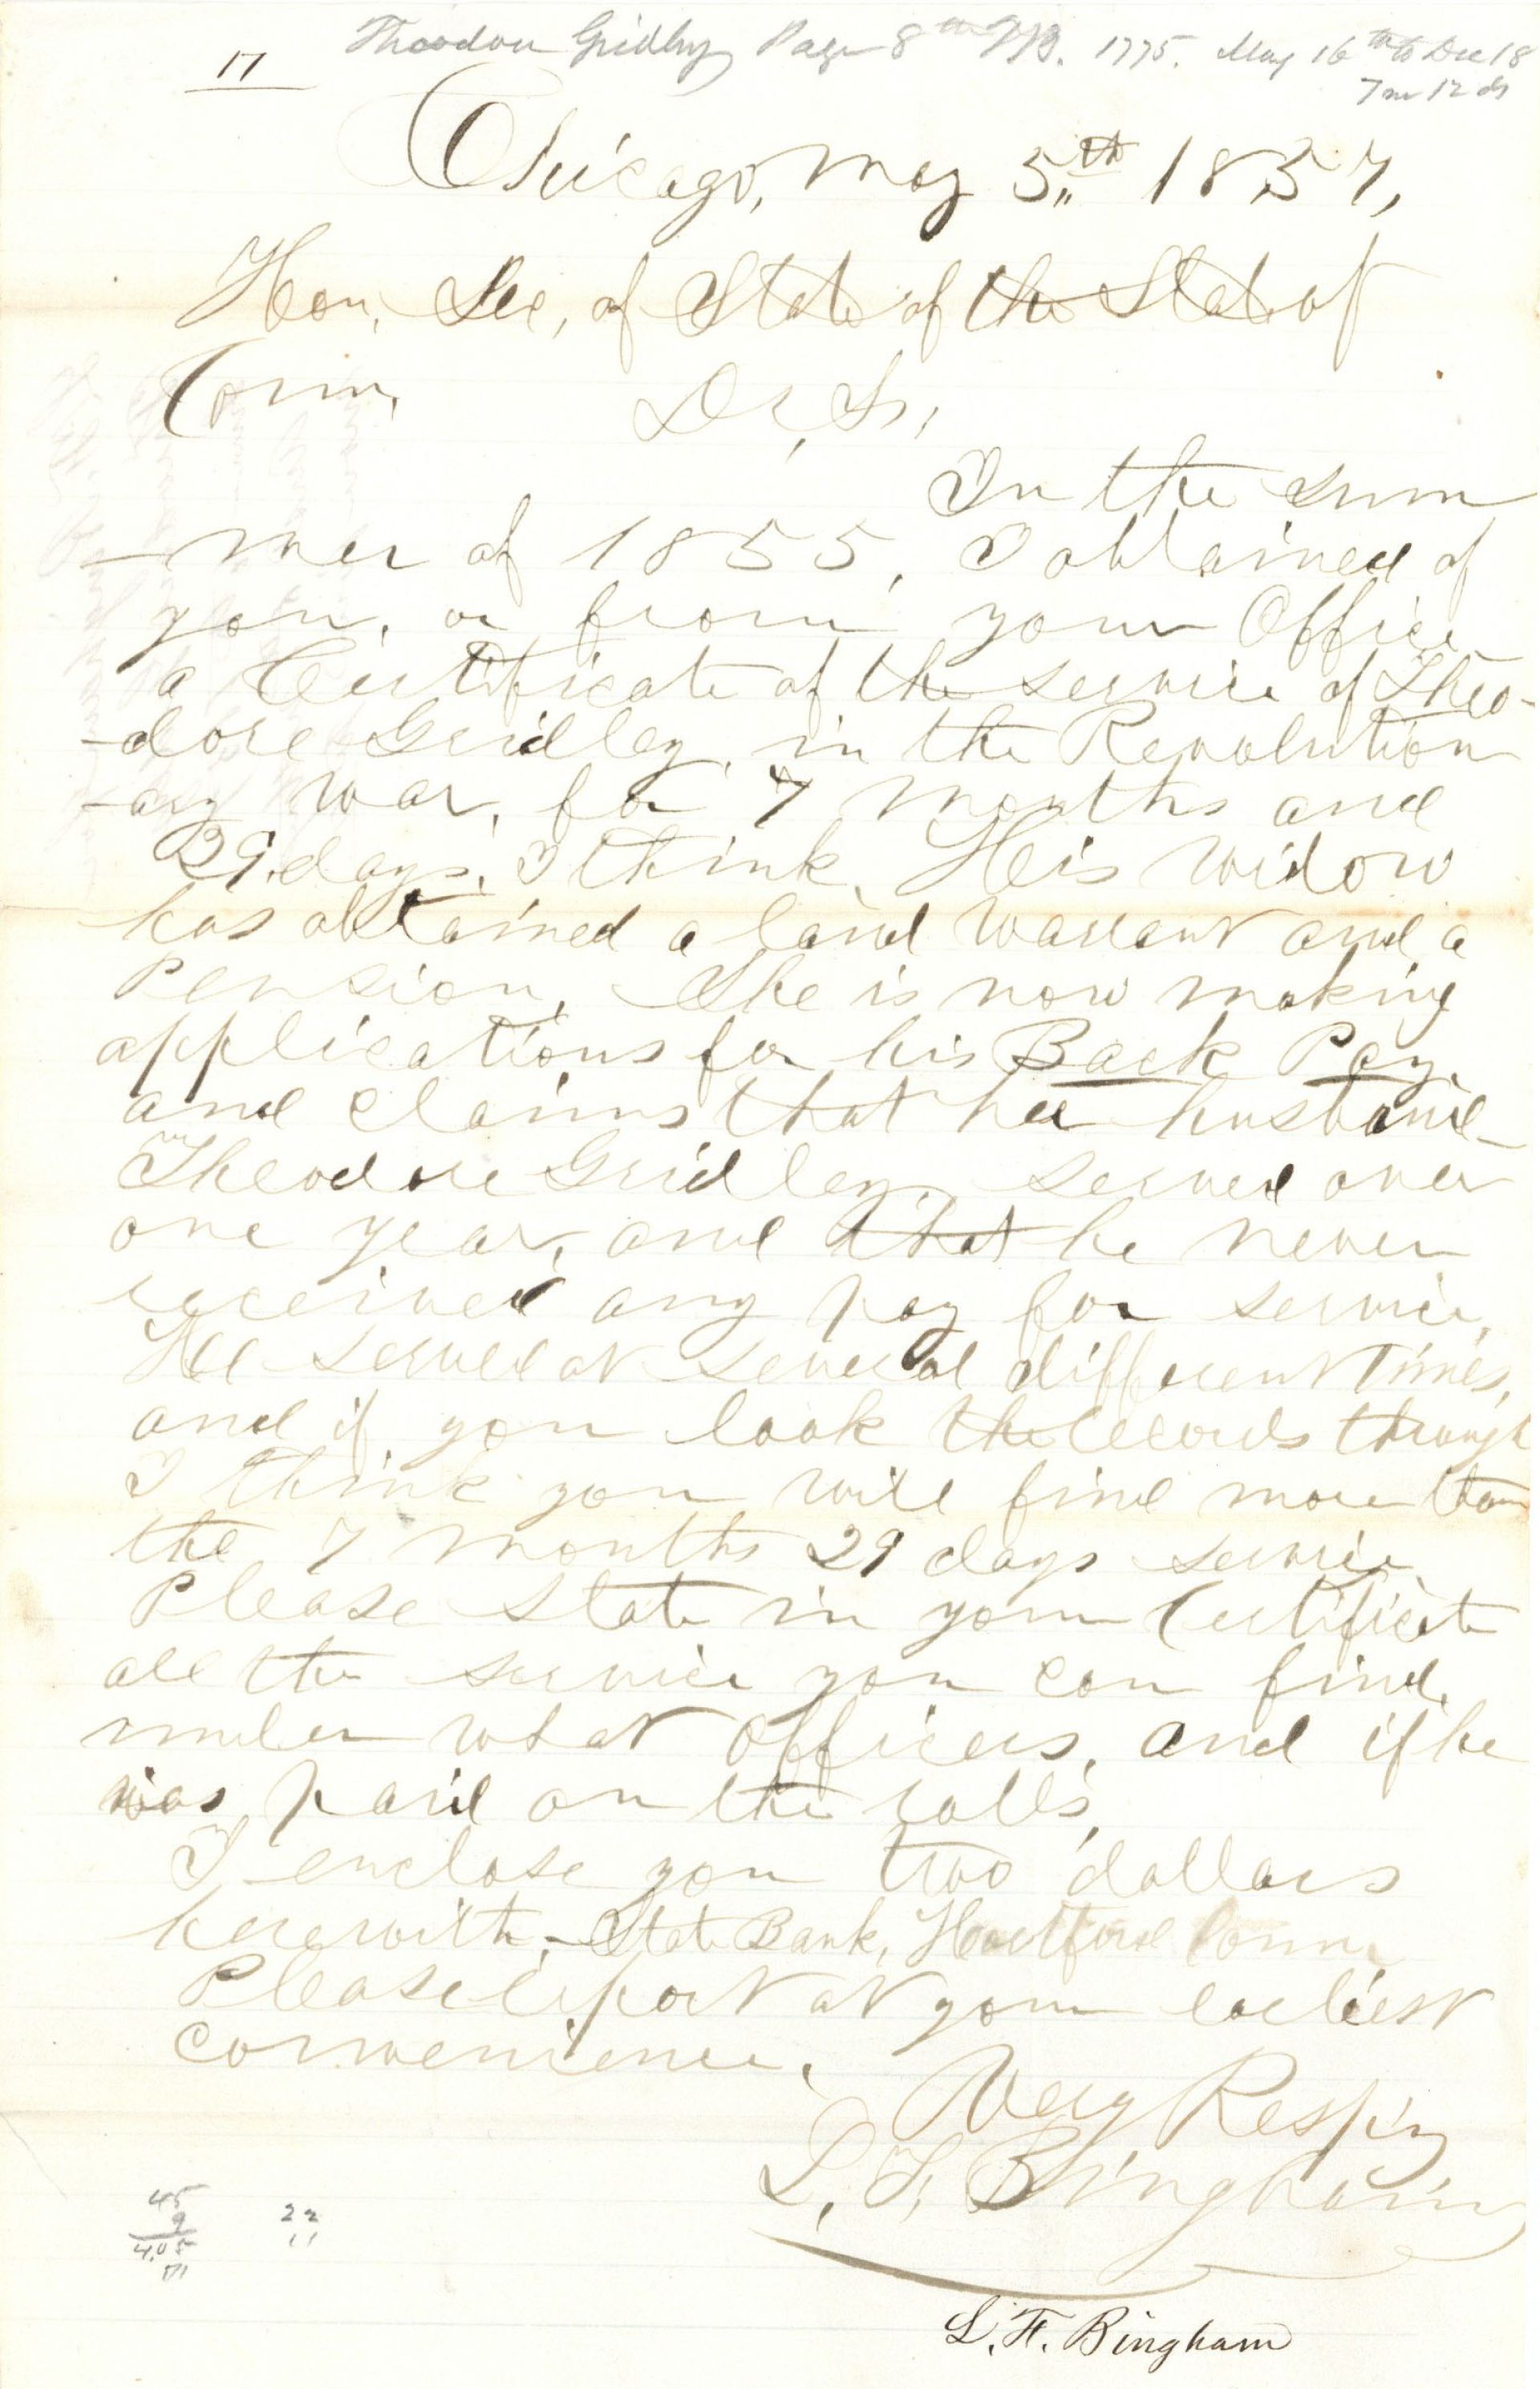 17
Theodore Gridley Page 8th 1775. May 16th to Dec 18
7 m 12 ds
Chicago, May 5th 1857,
Hon. Sec, of State of the State of
Conn, Dr, Sr,
In the sum
-mer of 1855, I obtained of
you, or from your Office,
a Certificate of the service of Theo-
-dore Gridley, in the Revolution
-ary war, for 7 months and
29 days, I think. His widow
has obtained a land warrant and a
Pension, She is now making
applications for his Back Pay,
and claims that her husband
Theodore Gridley, served over
one year, and that he never
received any pay for service,
He served at several different times,
and if you look the records through
I think you will find more than
the 7 months 29 days service
Please state in your Certificate
all the service you can find,
under what officers, and if he
was paid on the rolls,
I enclose you two dollars
herewith, - State Bank, Hartford Conn,
Please report at your earliest
convenience.
Very Resp'y
L. F. Bingham
45
9
4.05
22
11
L. F. Bingham